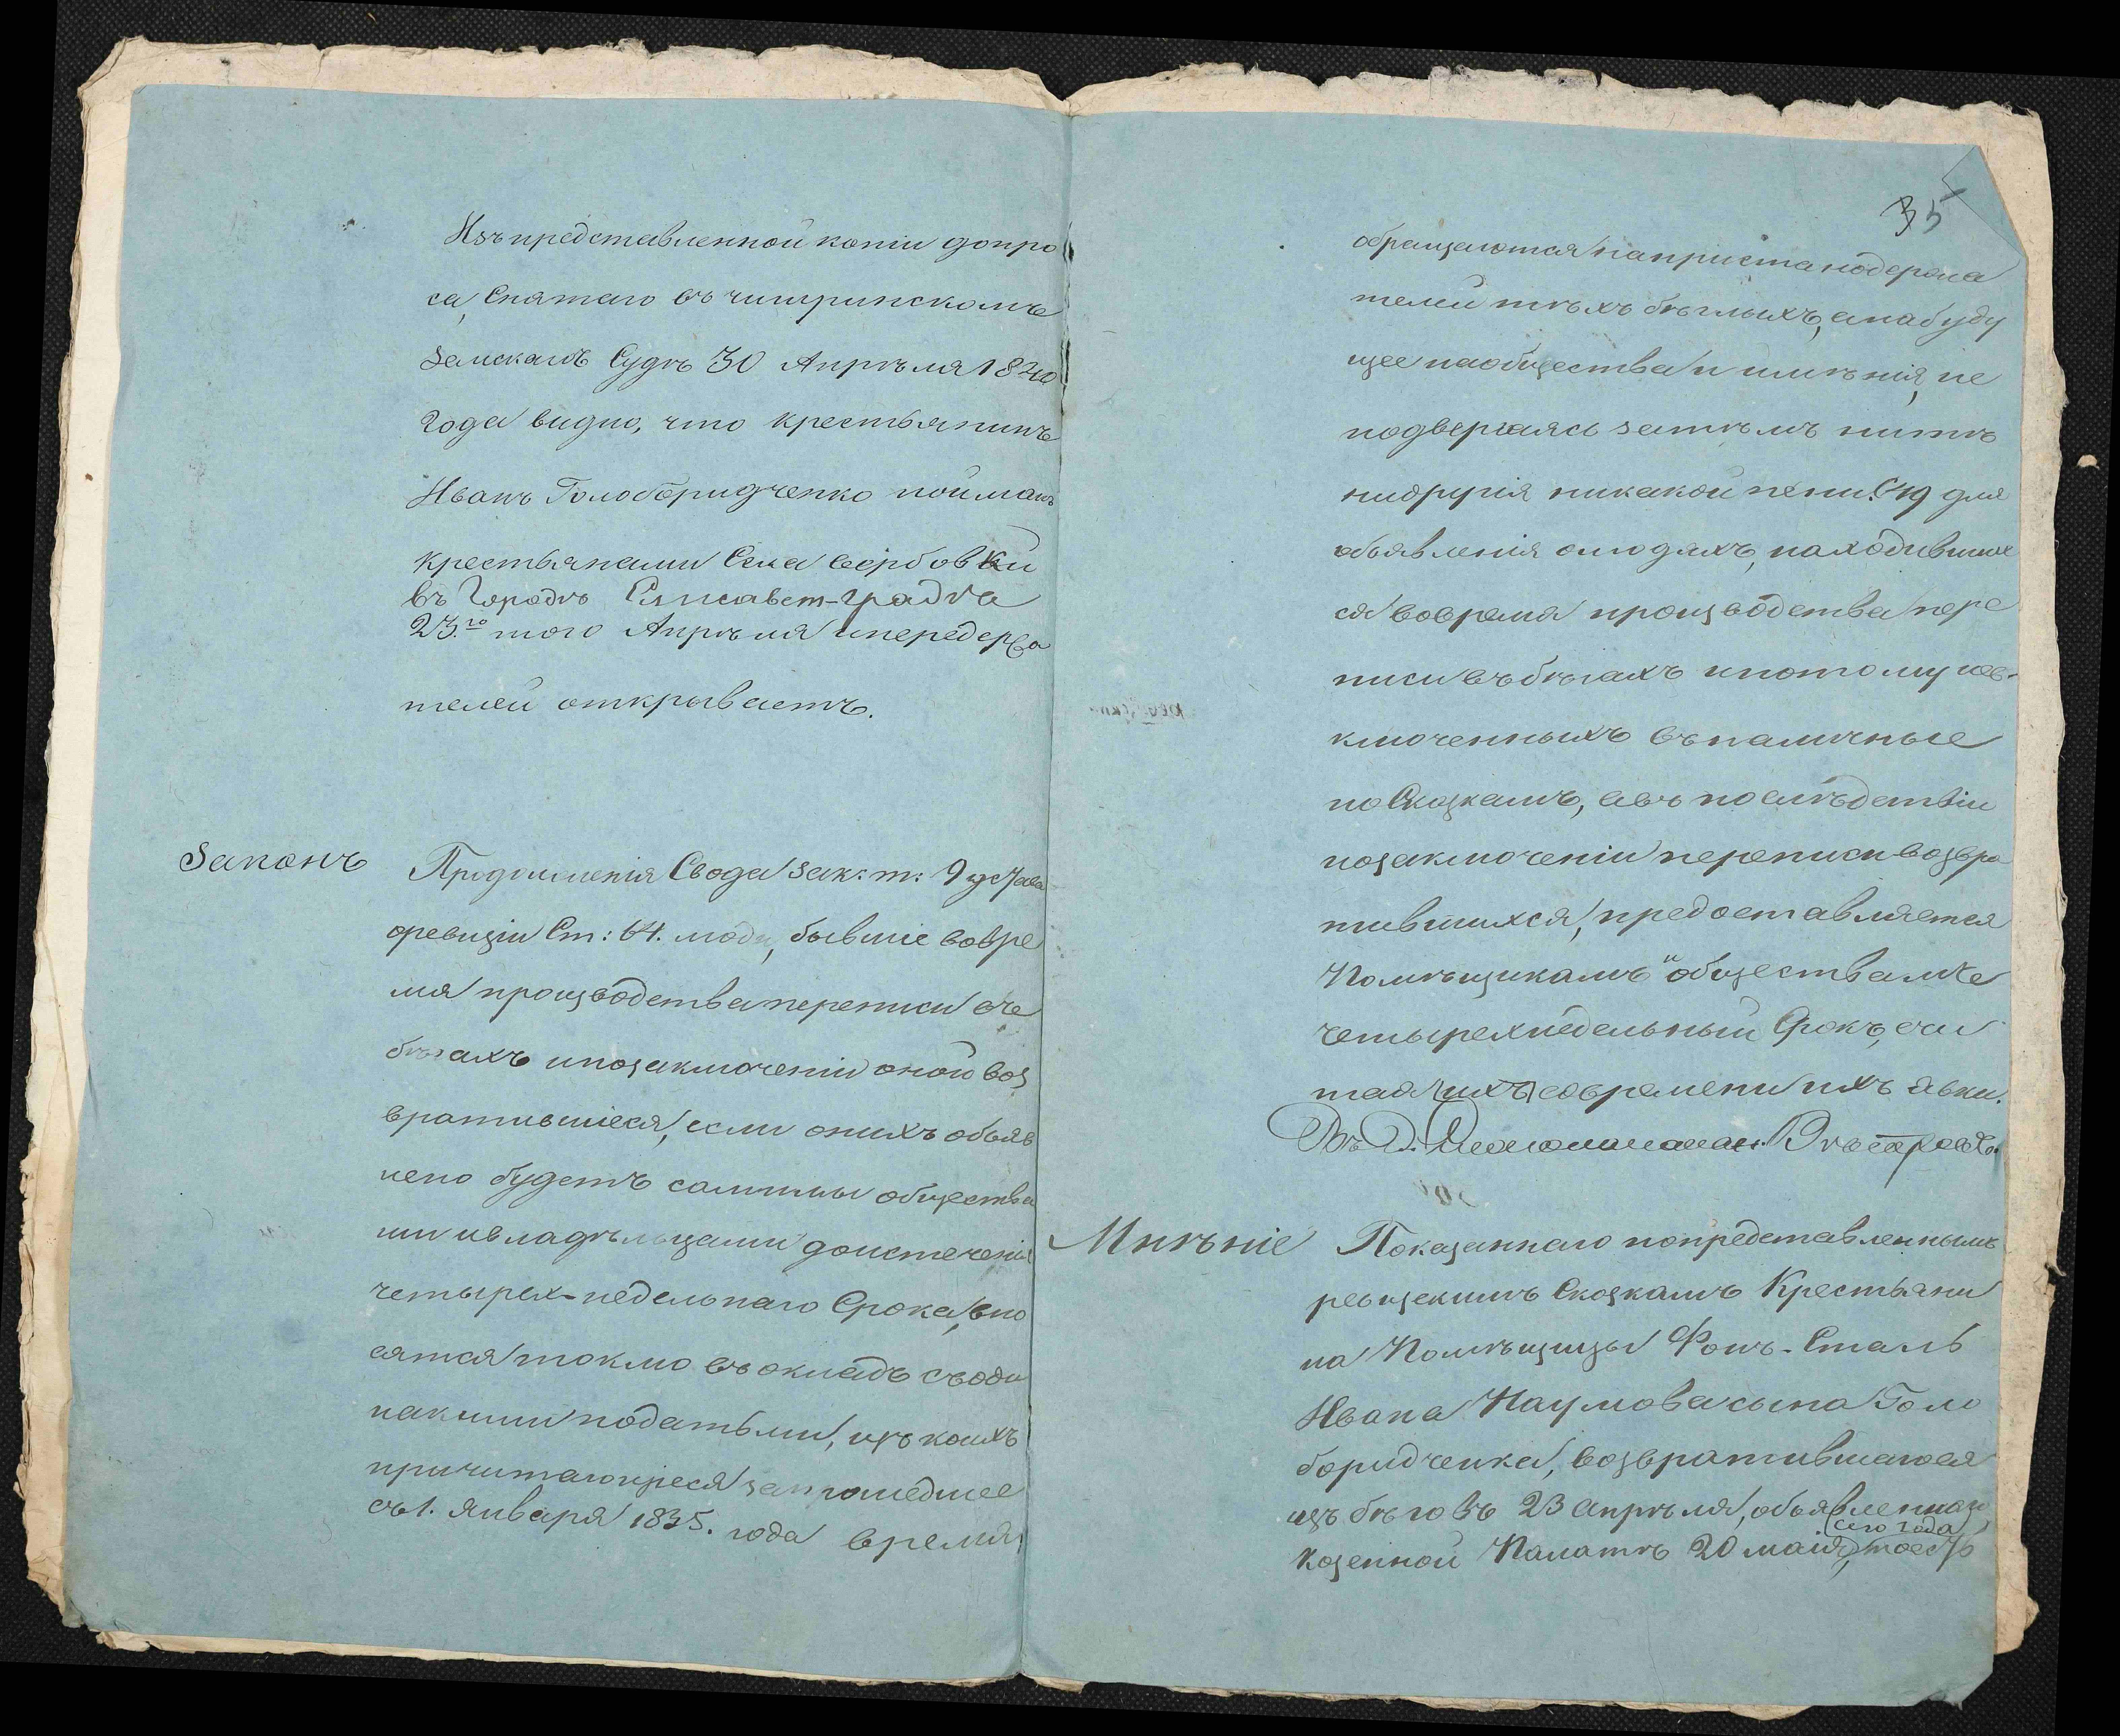 Изъ представленной копіи допро
са, Снятаго въ чигиринскомъ
Земскомъ Судѣ 30 Апрѣля 1840
года видно, что крестьянинъ
Иванъ Голобородченко пойманъ
крестьянами Села вербовки
въ Городѣ Елисавет-градѣ
23.го того Апрѣля и передержа
телей открываетъ.
Законъ
Продолженія Свода Зак: т: 9 устава
оревизіи Ст: 64. люди, бывшіе вовре
мя производства переписи въ
бѣгахъ и по заключеніи оной воз
вратившіеся, если о нихъ объяв
лено будетъ самими общества
ми и владѣльцами до истеченія
четырех-недельнаго Срока, вно
сятся токмо въ окладъ съ оди
накими податьми, изъ коихъ
причитающіеся за прошедшее
съ 1. Января 1835. года время
35
обращаются на пристанодержа
телей тѣхъ бѣглыхъ, а на буду
щее на общества и имѣнія, не
подвергаясь затѣмъ ни тѣ
ни другія никакой пени. 649 для
объявленія о людяхъ, находивших
ся вовремя производства пере
писи въ бѣгахъ и потому не в-
ключенныхъ въ наличные
по Сказкамъ, а въ послѣдствіи
по заключеніи переписи возвра
тившихся, предоставляется
Помѣщикамъ и обществамъ
четырехнедельный Срокъ, счи
тая (ихъ) со времени ихъ явки.
Мнѣніе
Показаннаго по представленнымъ
ревизскимъ Сказкамъ Крестьяни
на Помѣщицы Фонъ-Сталь
Ивана Наумова сына Голо
бородченка, возвратившагося
изъ бѣговъ 23 апрѣля, объявленнаго
(сего года)
Казенной Палатѣ 20 мая, тоесть